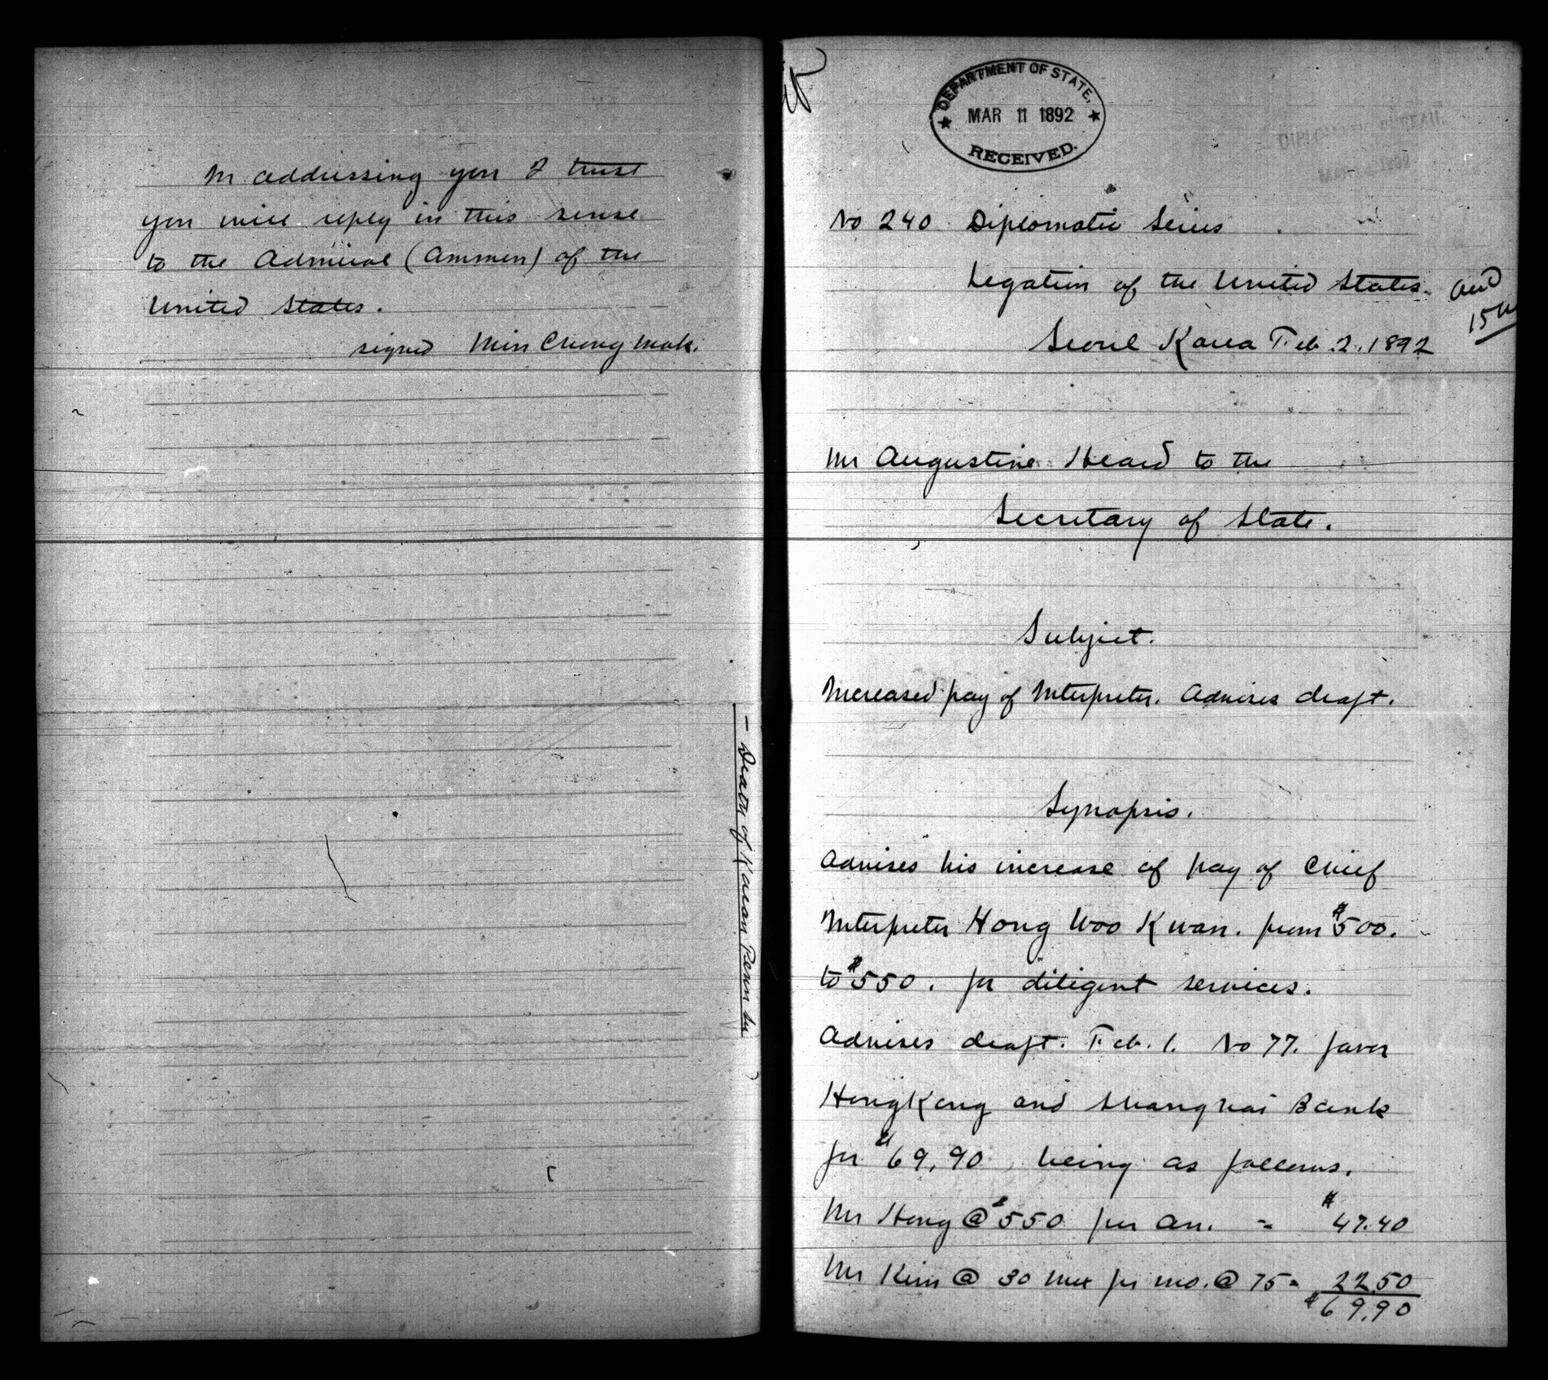 In addressing you I trust
you will reply in this sense
to the Admiral (Ammen) of the
United States.
signed Min Chong Mok.
- Death of Korean Penn in
DEPARTMENT OF STATE,
MAR 11 1892
RECEIVED.
No 240 Diplomatic Series
Legation of the United States.
Seoul Korea Feb. 2. 1892
and
15th
Mr Augustine Heard to the
Secretary of State.
Subject.
Increased pay of Interpreter. Advises draft.
Synopsis.
Advises his increase of pay of Chief
Interpreter Hong Woo Kwan. from $500.
to $550. for diligent services.
Advises draft. Feb. 1. No 77. favor
HongKong and Shanghai Bank
for $69.90 being as follows.
Mr Hong @ $550 per an. = $47.40
Mr Kim @ 30 Mex per mo. @ 75 = 22 50
$69.90